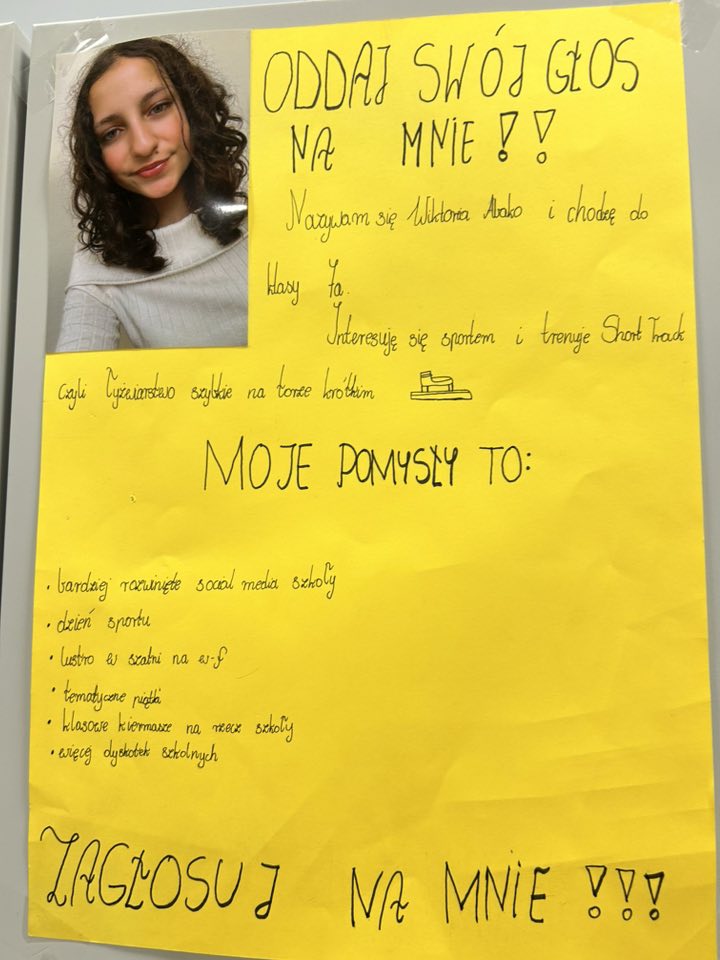 ODDAJ SWÓJ GŁOS
NA MNIE!!
Nazywam się Wiktoria Abako i chodzę do
klasy 7a.
Interesuję się sportem i trenuje Short Track
czyli Łyżwiarstwo szybkie na torze krótkim
MOJE POMYSŁY TO:
• bardziej rozwinięte social media szkoły
• dzień sportu
• lustro w szatni na w-f
• tematyczne piątki
• klasowe kiermasze na rzecz szkoły
• więcej dyskotek szkolnych
ZAGŁOSUJ NA MNIE !!!